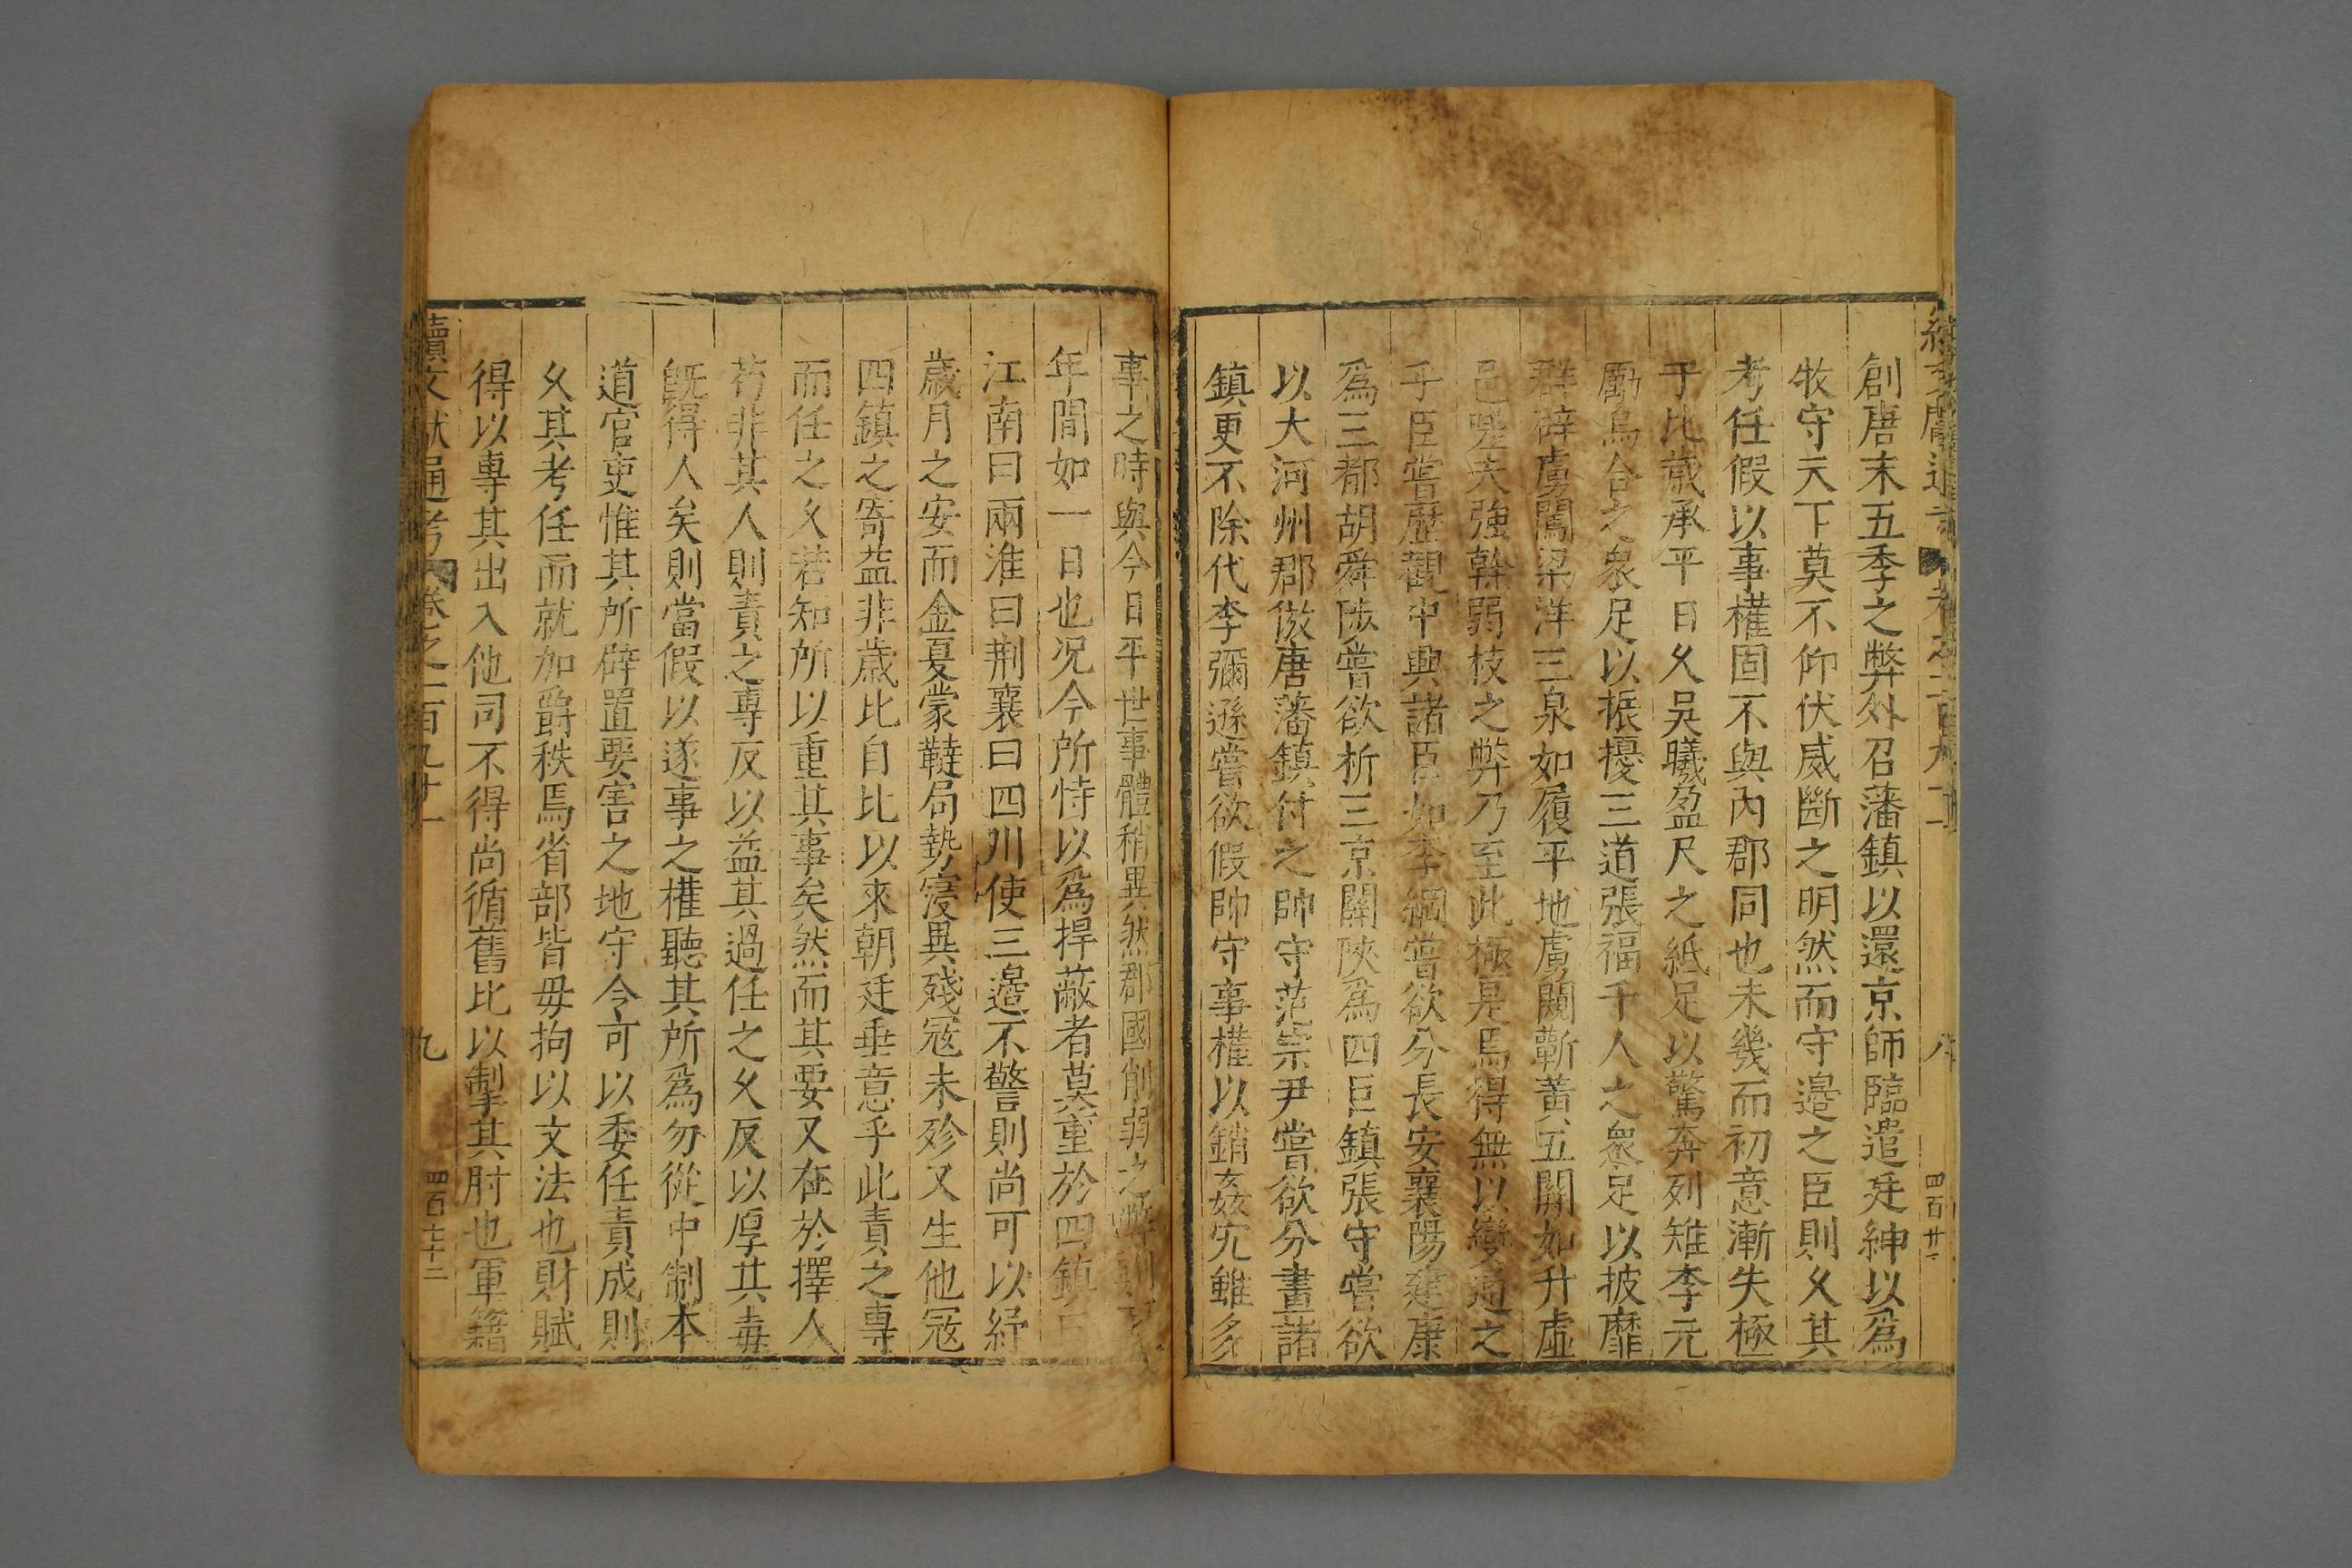 創唐末五季之弊外召藩鎮以還京師臨遣廷紳以爲
牧守天下莫不仰伏威斷之明然而守邉之臣則乆其
考任假以事權固不與內郡同也未幾而初意漸失極
于比歳承平日乆吳曦盈尺之紙足以驚奔列雉李元
勵烏合之衆足以振擾三道張福千人之衆足以披靡
群辟虜闖梁洋三泉如履平地虜闞蘄黃五關如升虛
邑嗟夫強幹弱枝之弊乃至此極是焉得無以變通之
乎臣嘗歷觀中興諸臣如李綱嘗欲分長安襄陽建康
爲三都胡舜陟嘗欲析三京關陜爲四巨鎮張守嘗欲
以大河州郡倣唐藩鎮付之帥守范宗尹嘗欲分畫諸
鎮更不除代李彌遜嘗欲假帥守事權以銷姦宄雖多
事之時與今日平世事體稍異然郡國削弱之弊則百
年間如一日也况今所恃以爲捍蔽者莫重於四鎮曰
江南曰兩淮曰荆襄曰四川使三邉不警則尚可以紓
歲月之安而金夏蒙韃局勢寖異殘冦未殄又生他冦
四鎮之寄益非歲比自比以來朝廷垂意乎此責之專
而任之乆若知所以重其事矣然而其要又在於擇人
茍非其人則責之專反以益其過任之乆反以厚其毒
旣得人矣則當假以遂事之權聽其所爲勿從中制本
道官吏惟其所辟置要害之地守令可以委任責成則
乆其考任而就加爵秩焉省部皆毋拘以文法也財賦
得以專其出入他司不得尚循舊比以掣其肘也軍籍
續文獻通考 卷之一百九十一
九
四百七十二